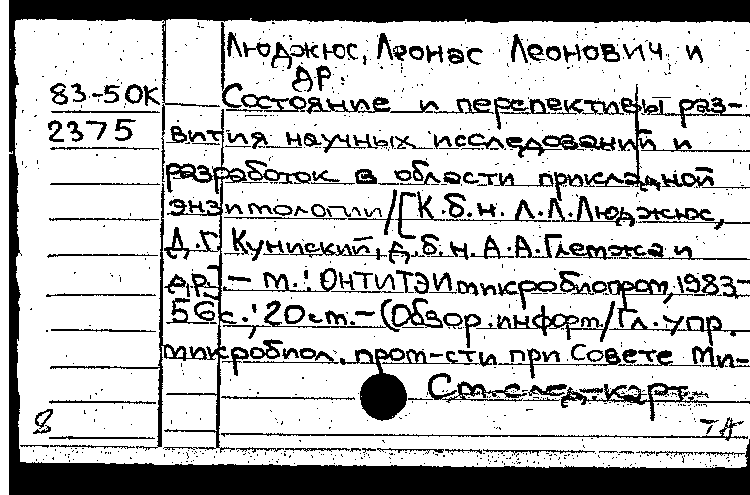 Люджюс, Леонас Леонович и
др.
83-5 ОК Состояние и перспективы раз-
2375 вития научных исследований и
разработок в области прикладной
энзимологии/[К.б.н. Л.Л.Люджюс,
Д.Г. Куниский, д.б.н. А.А.Глемжа и
др.]. – М.: ОНТИТЭИмикробиопром, 1983-
56с.; 20см.-(Обзор.информ/Гл.упр.
микробиол. пром-сти при Совете Ми-
См.след.карт.
8